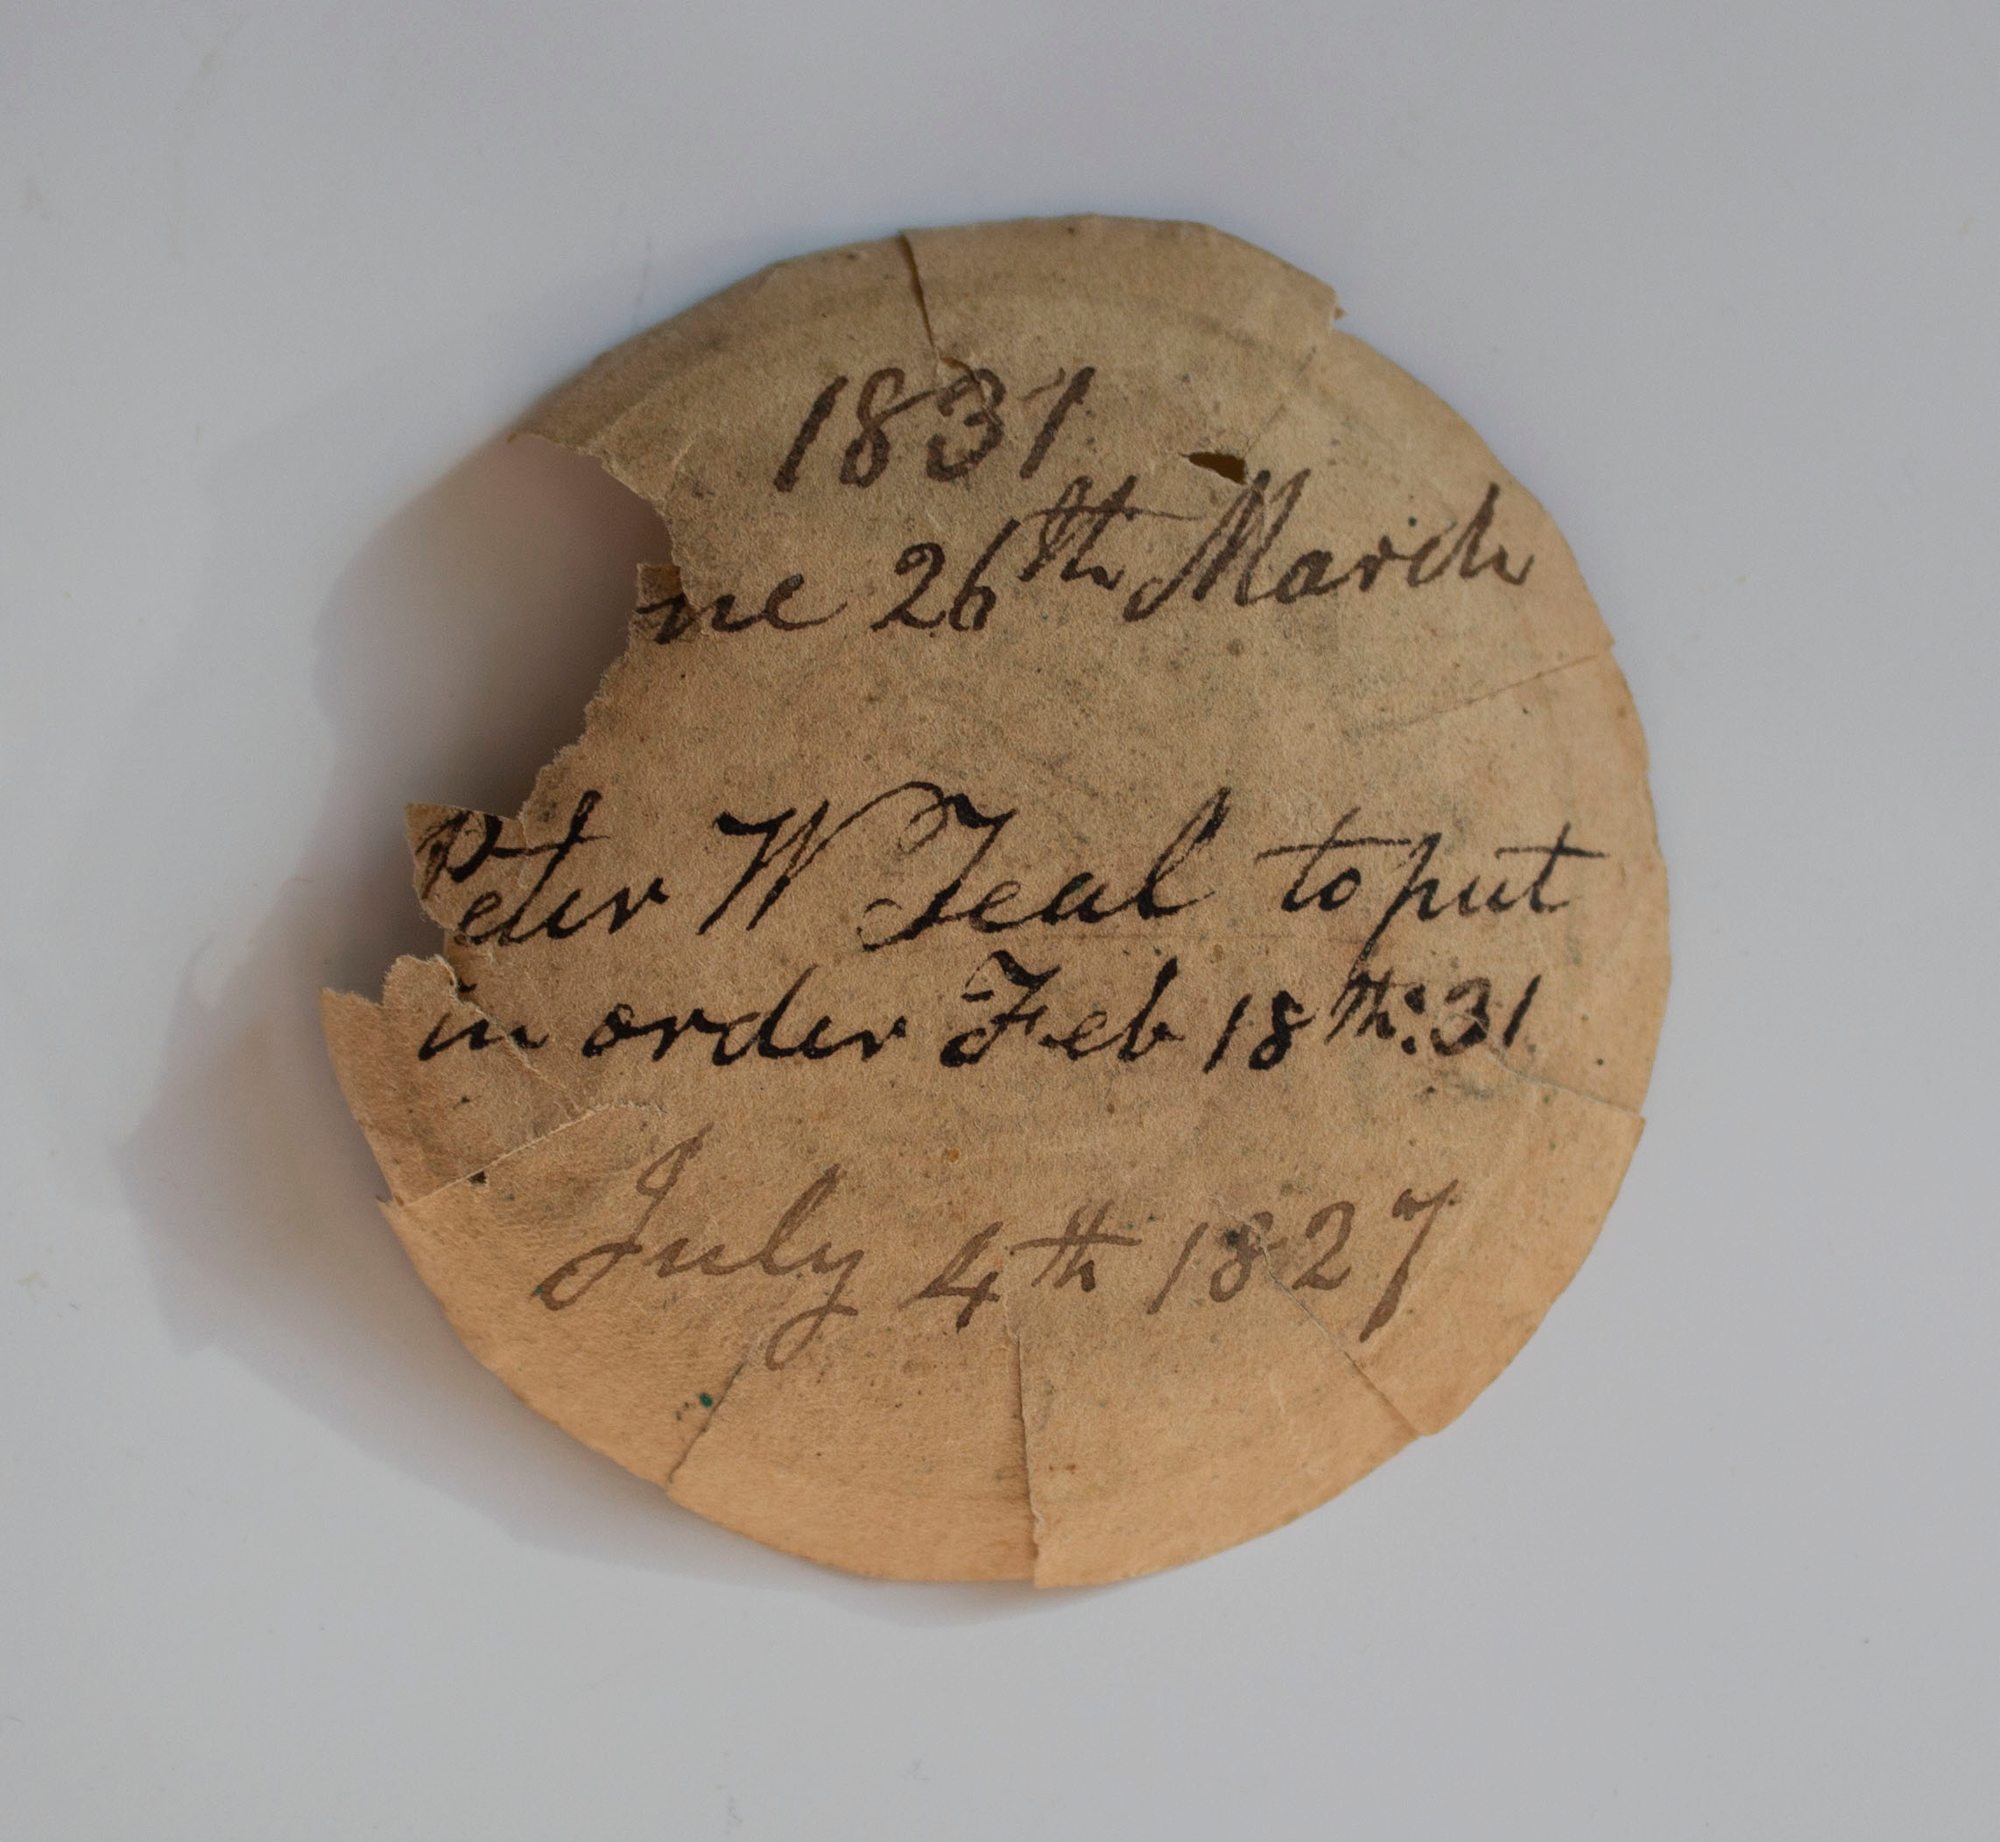 1831
ne 26th March
Peter W Teal to put
in order Feb 18th: 31
July 4th 1827